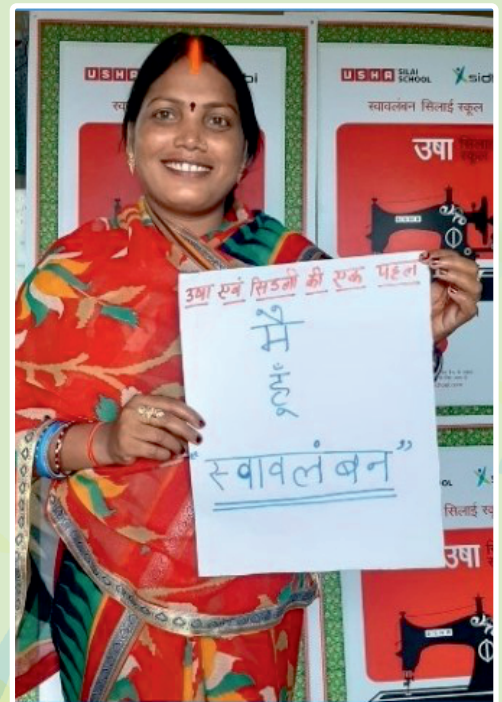 USHA SILAI SCHOOL sid
स्वावलंबन सिलाई स्कूल
उषा सिलाई स्कूल
USHA
उषा एवं सिडबी की एक पहल
मैं
हूँ
"स्वावलंबन"
सिलाई स्
उषा
USHA